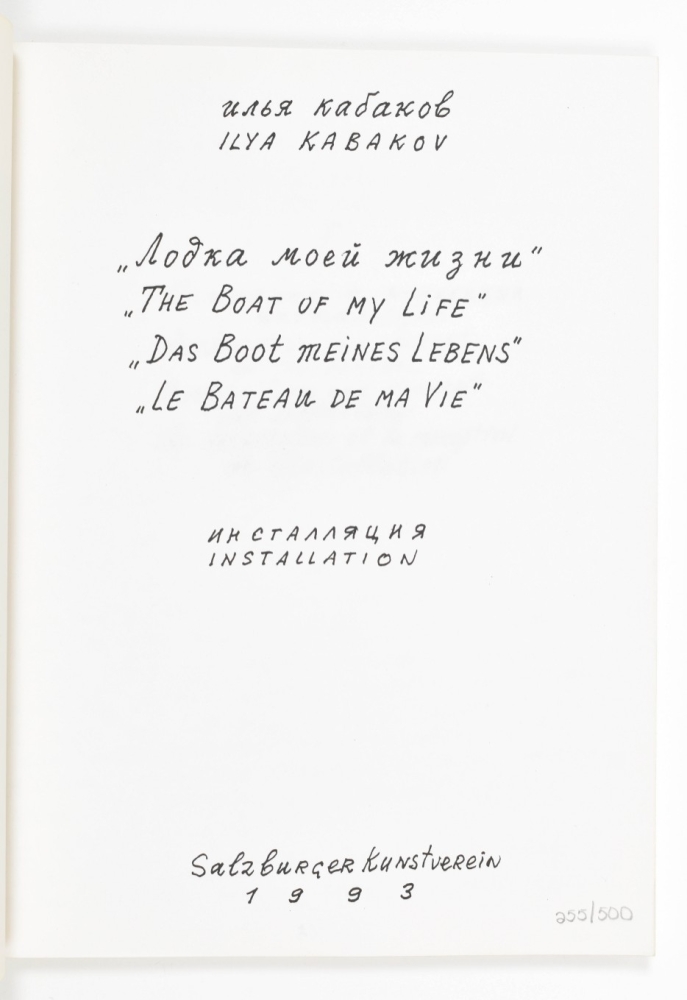 илья кабаков
ILYA KABAKOV
„Лодка моей жизни“
„THE BOAT OF MY LIFE“
„DAS BOOT MEINES LEBENS“
„LE BATEAU DE MA VIE“
ИНСТАЛЛЯЦИЯ
INSTALLATION
Salzburger Kunstverein
1993
255/500